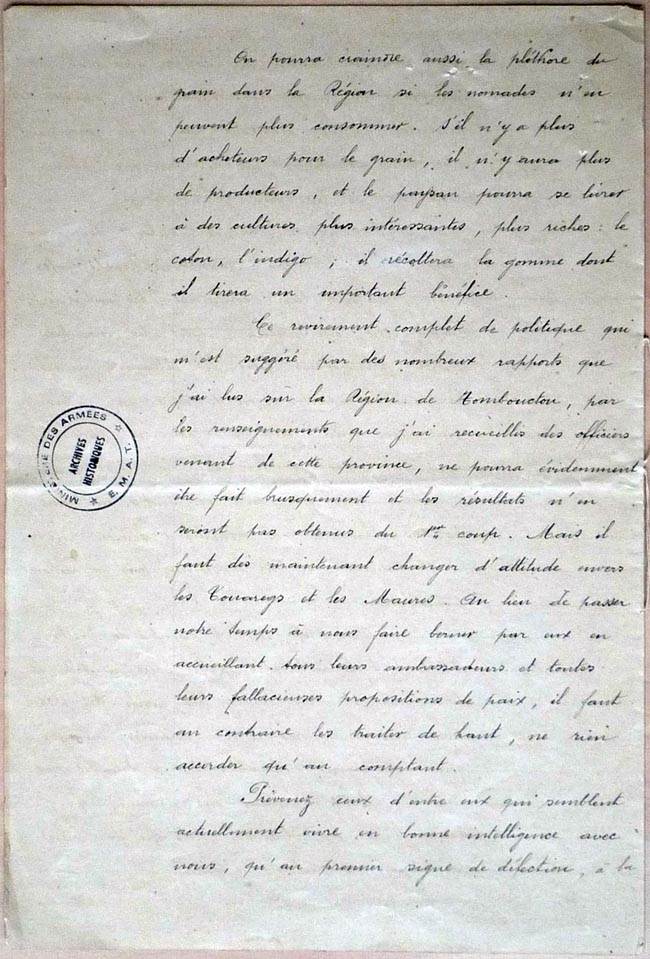 On pourra craindre aussi la pléthore du
grain dans la Région si les nomades n'en
peuvent plus consommer. S'il n'y a plus
d'acheteurs pour le grain, il n'y aura plus
de producteurs, et le paysan pourra se livrer
à des cultures plus intéressantes, plus riches : le
coton, l'indigo ; il récoltera la gomme dont
il tirera un important bénéfice.
Ce revirement complet de politique qui
m'est suggéré par des nombreux rapports que
j'ai lus sur la Région de Tombouctou, par
les renseignements que j'ai recueillis des officiers
venant de cette province, ne pourra évidemment
être fait brusquement et les résultats n'en
seront pas obtenus du 1er coup. Mais il
faut dès maintenant changer d'attitude envers
les Touaregs et les Maures. Au lieu de passer
notre temps à nous faire berner par eux en
accueillant tous leurs ambassadeurs et toutes
leurs fallacieuses propositions de paix, il faut
au contraire les traiter de haut, ne rien
accorder qu'au comptant.
Prévenez ceux d'entre eux qui semblent
actuellement vivre en bonne intelligence avec
nous, qu'au premier signe de défection, à la
MINISTÈRE DES ARMÉES ☆ E.M.A.T. ☆
ARCHIVES
HISTORIQUES